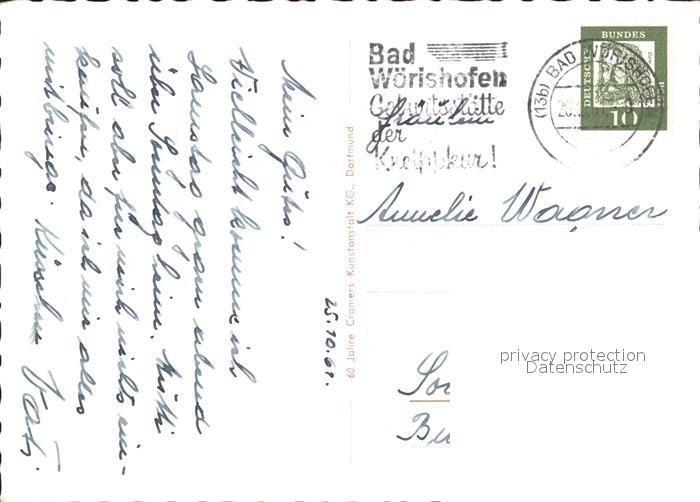 Mein Gutes!
Vielleicht komme ich
Samstag gegen abend
über Sonntag heim. Mutti
soll aber für mich nichts ein-
kaufen, da ich mir alles
mitbringe. Küsschen Vati.
25.10.61.
60 Jahre Cramers Kunstanstalt KG., Dortmund
Bad
Wörishofen
Geburtsstätte
der
Kneippkur!
(13b) BAD WÖRISHOFEN
DEUTSCHE BUNDESPOST
10
Fräulein
Annelie Wagner
privacy protection
Datenschutz